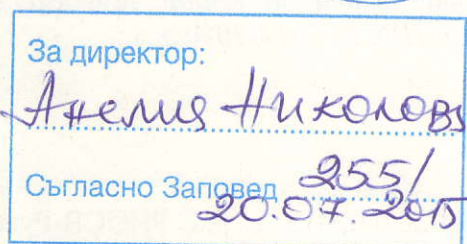 За директор:
Анелия Николова
Съгласно Заповед 255/
20.07.2015